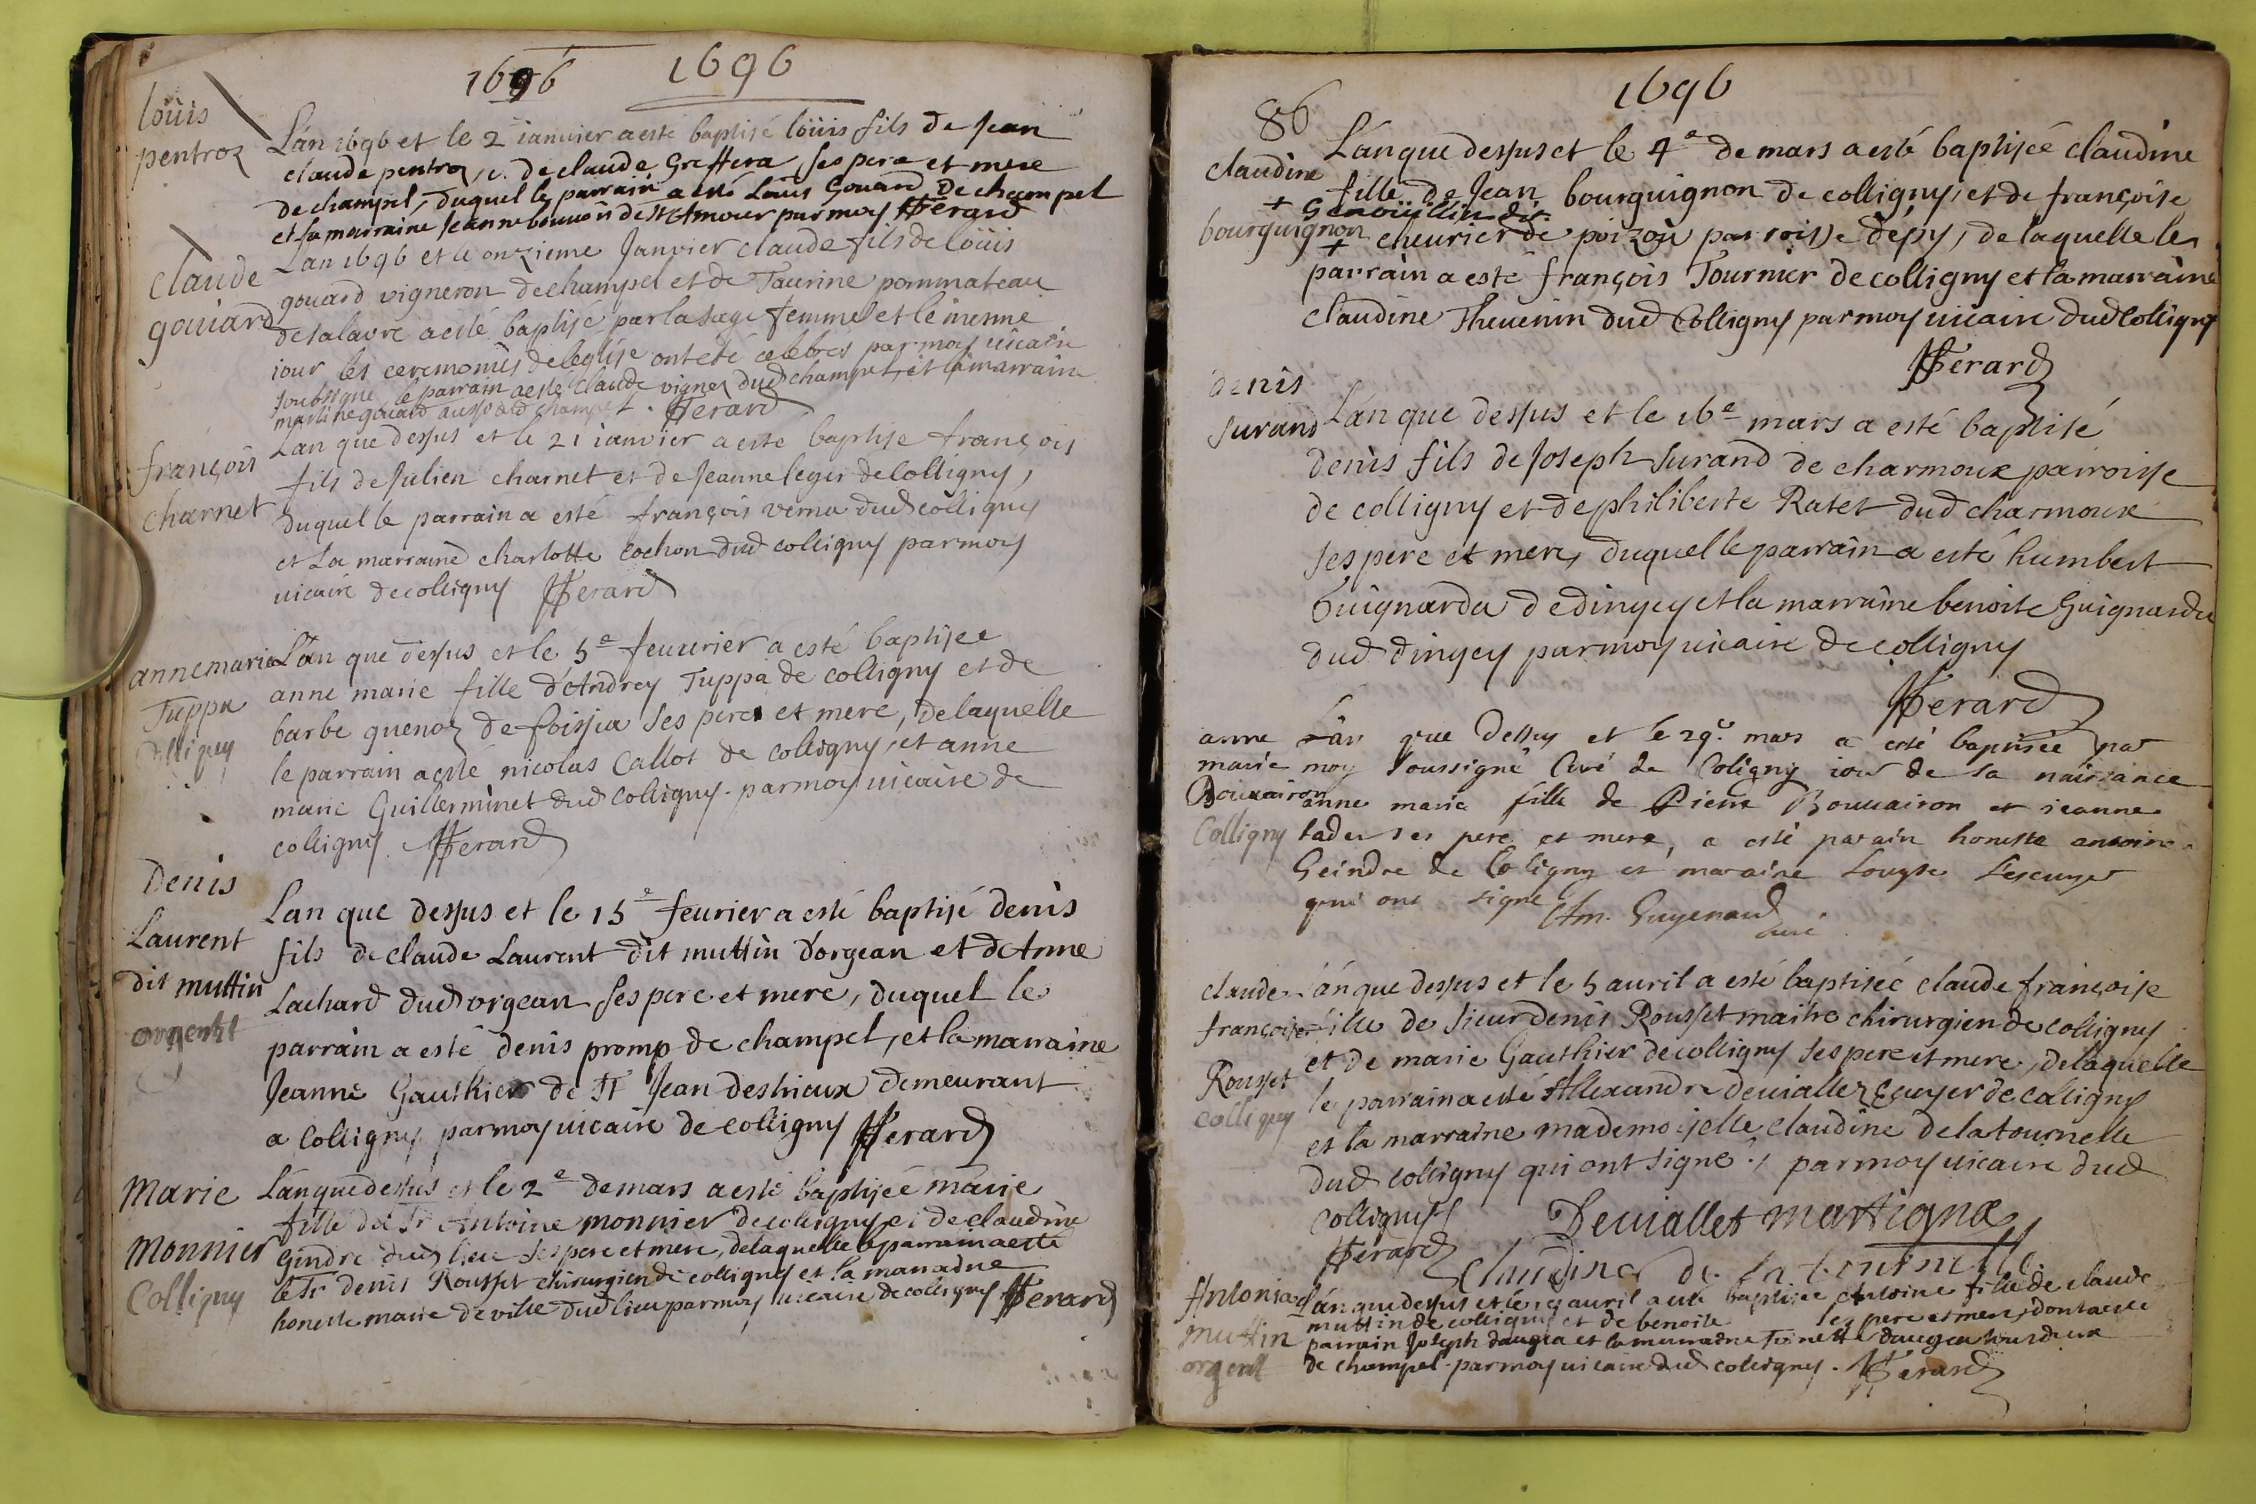 1696 1696
loüis
pentroz
L'an 1696 et le 2 ianuier a esté baptisé loüis fils de Jean
claude pentroz, e. de claude Greffera ses pere et mere
de champel, duquel le parrain a esté Loüis Gouard De champel
et la marraine Jeanne bouuoir de st Amour par moy HFerard
claude
gouard
Lan 1696 et le onzieme Janvier claude fils de loüis
gouard vigneron de champel et de Taurine pommateau
de salavre a esté baptisé par la sage femme et le mesme
iour les ceremonies de leglise ont eté celebres par moy uicaire
soubsigné le parrain a esté claude vignez dud champel et la marraine
martine gouard aussy dud champel. HFerard
françois
charnet
Lan que dessus et le 21 ianvier a esté baptise françois
fils de Julien charnet et de Jeanne leger de Colligny,
duquel le parrain a esté françois verna dud colligny
et La marraine charlotte cochon dud colligny par moy
uicaire de colligny HFerard
anne marie
Tuppa
Colligny
L'an que dessus et le 5e feuurier a esté baptisee
anne marie fille d'Andrey Tuppa de colligny et de
barbe quenoz de foissia ses peres et mere, de laquelle
le parrain a esté nicolas Callot de colligny, et anne
marie Guillerminet dud Colligny. par moy uicaire de
colligny. HFerard
Denis
Laurent
dit muttin
orgent
Lan que dessus et le 15e feurier a esté baptisé denis
fils de claude Laurent dit muttin d'orgean et d'Anne
Lachard dud orgean ses pere et mere, duquel le
parrain a esté denis promp de champel, et la marraine
Jeanne Gauthier de St Jean destrieux demeurant
a Colligny par moy uicaire de colligny HFerard
Marie
Monnier
Colligny
L'an que dessus et le 2e de mars a esté baptisée marie
fille de Sr Antoine monnier de colligny et de claudine
Gindre dud lieu ses pere et mere, de laquelle le parrain a esté
le Sr denis Rousset chirurgien de colligny et la marraine
honeste marie deville dud lieu par moy uicaire de colligny HFerard
1696
86
claudine
bourguignon
L'an que dessus et le 4e de mars a esté baptisée claudine
fille de Jean bourguignon de colligny, et de françoise
+ Genoüillin dit
+ cheurier de poizou parroisse d'épy, de laquelle le
parrain a esté françois Tournier de colligny et la marraine
claudine Theuenin dud Colligny par moy uicaire dud Colligny
HFerard
denis
Surand
L'an que dessus et le 16e mars a esté baptisé
denis fils de Joseph Surand de charmoux parroisse
de colligny et de philiberte Ratet dud charmoux
ses pere et mere, duquel le parrain a esté humbert
Guignarda de dingey et la marraine benoite Guignarda
dud dingey par moy uicaire de colligny
HFerard
anne
marie
Bouuairon
Colligny
L'an que Dessus et le 29e mars a esté baptisée par
moy soussigné Curé de Coligny iour de sa naissance
anne marie fille de Pierre Bouuairon et ieanne
tader ses pere et mere, a esté parain honeste antoine
Geindre de Coligny et maraine Louyse Lescuyer
qui ont signé
Am. Guyenard
curé
claude
françoise
Rousset
Colligny
L'an que dessus et le 5 auril a esté baptisée claude françoise
fille de sieur denis Rousset maitre chirurgien de colligny
et de marie Gauthier de colligny ses pere et mere, de laquelle
le parrain a esté Allexandre deuiallez Ecuyer de coligny
et la marraine mademoiselle claudine de la tournelle
dud colligny qui ont signé. par moy uicaire dud
Colligny
HFerard
Deuiallet martigna
Claudine de la tournelle
Antonia
muttin
orgent
L'an que dessus et le auril a esté baptisée Antoine fille de claude
muttin de colligny et de benoite ses pere et mere, dont a esté
parrain Joseph daugea et la marraine Toinette daugea tous deux
de champel. par moy uicaire dud colligny. HFerard